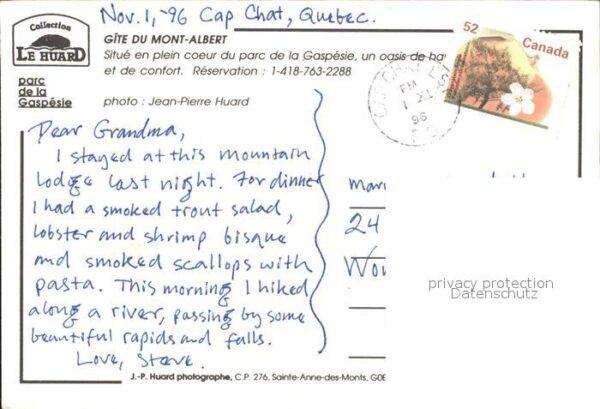 Nov. 1, -96 Cap Chat, Quebec.
Collection
LE HUARD
parc
de la
Gaspésie
GÎTE DU MONT-ALBERT
Situé en plein coeur du parc de la Gaspésie, un oasis de
et de confort. Réservation : 1-418-763-2288
photo : Jean-Pierre Huard
52
Canada
PM
96
Dear Grandma,
I stayed at this mountain
lodge last night. For dinner
I had a smoked trout salad,
lobster and shrimp bisque
and smoked scallops with
pasta. This morning I hiked
along a river, passing by some
beautiful rapids and falls.
Love, Steve.
24
privacy protection
Datenschutz
J.-P. Huard photographe, C.P. 276, Sainte-Anne-des-Monts, G0E